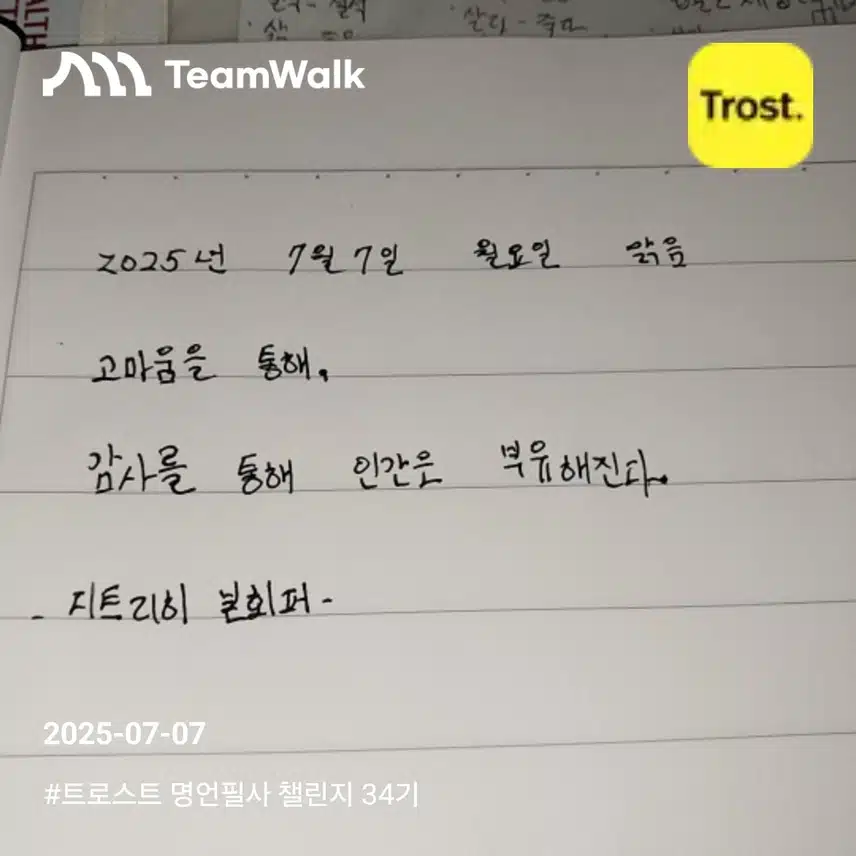 ALTH
TeamWalk
Trost.
2025년 7월 7일 월요일 맑음
고마움을 통해,
감사를 통해 인간은 부유해진다.
- 지트리히 본회퍼 -
2025-07-07
#트로스트 명언필사 챌린지 34기